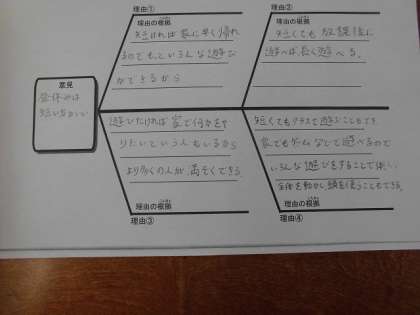 理由①
理由の根拠
短ければ家に早く帰れ
るのでもといろんな遊び
ができるから
理由②
理由の根拠
短くても放課後に
遊べば長く遊べる。
意見
昼休みは
短い方がいい
遊びたければ家で何かをや
りたいという人もいるから
より多くの人が満そくできる。
理由の根拠
理由③
短くてもクラスで遊ぶこともでき
家でもゲームなどで遊べるので
いろんな遊びをすることで
全体を動かし、頭を使うこともできる。
理由の根拠
理由④